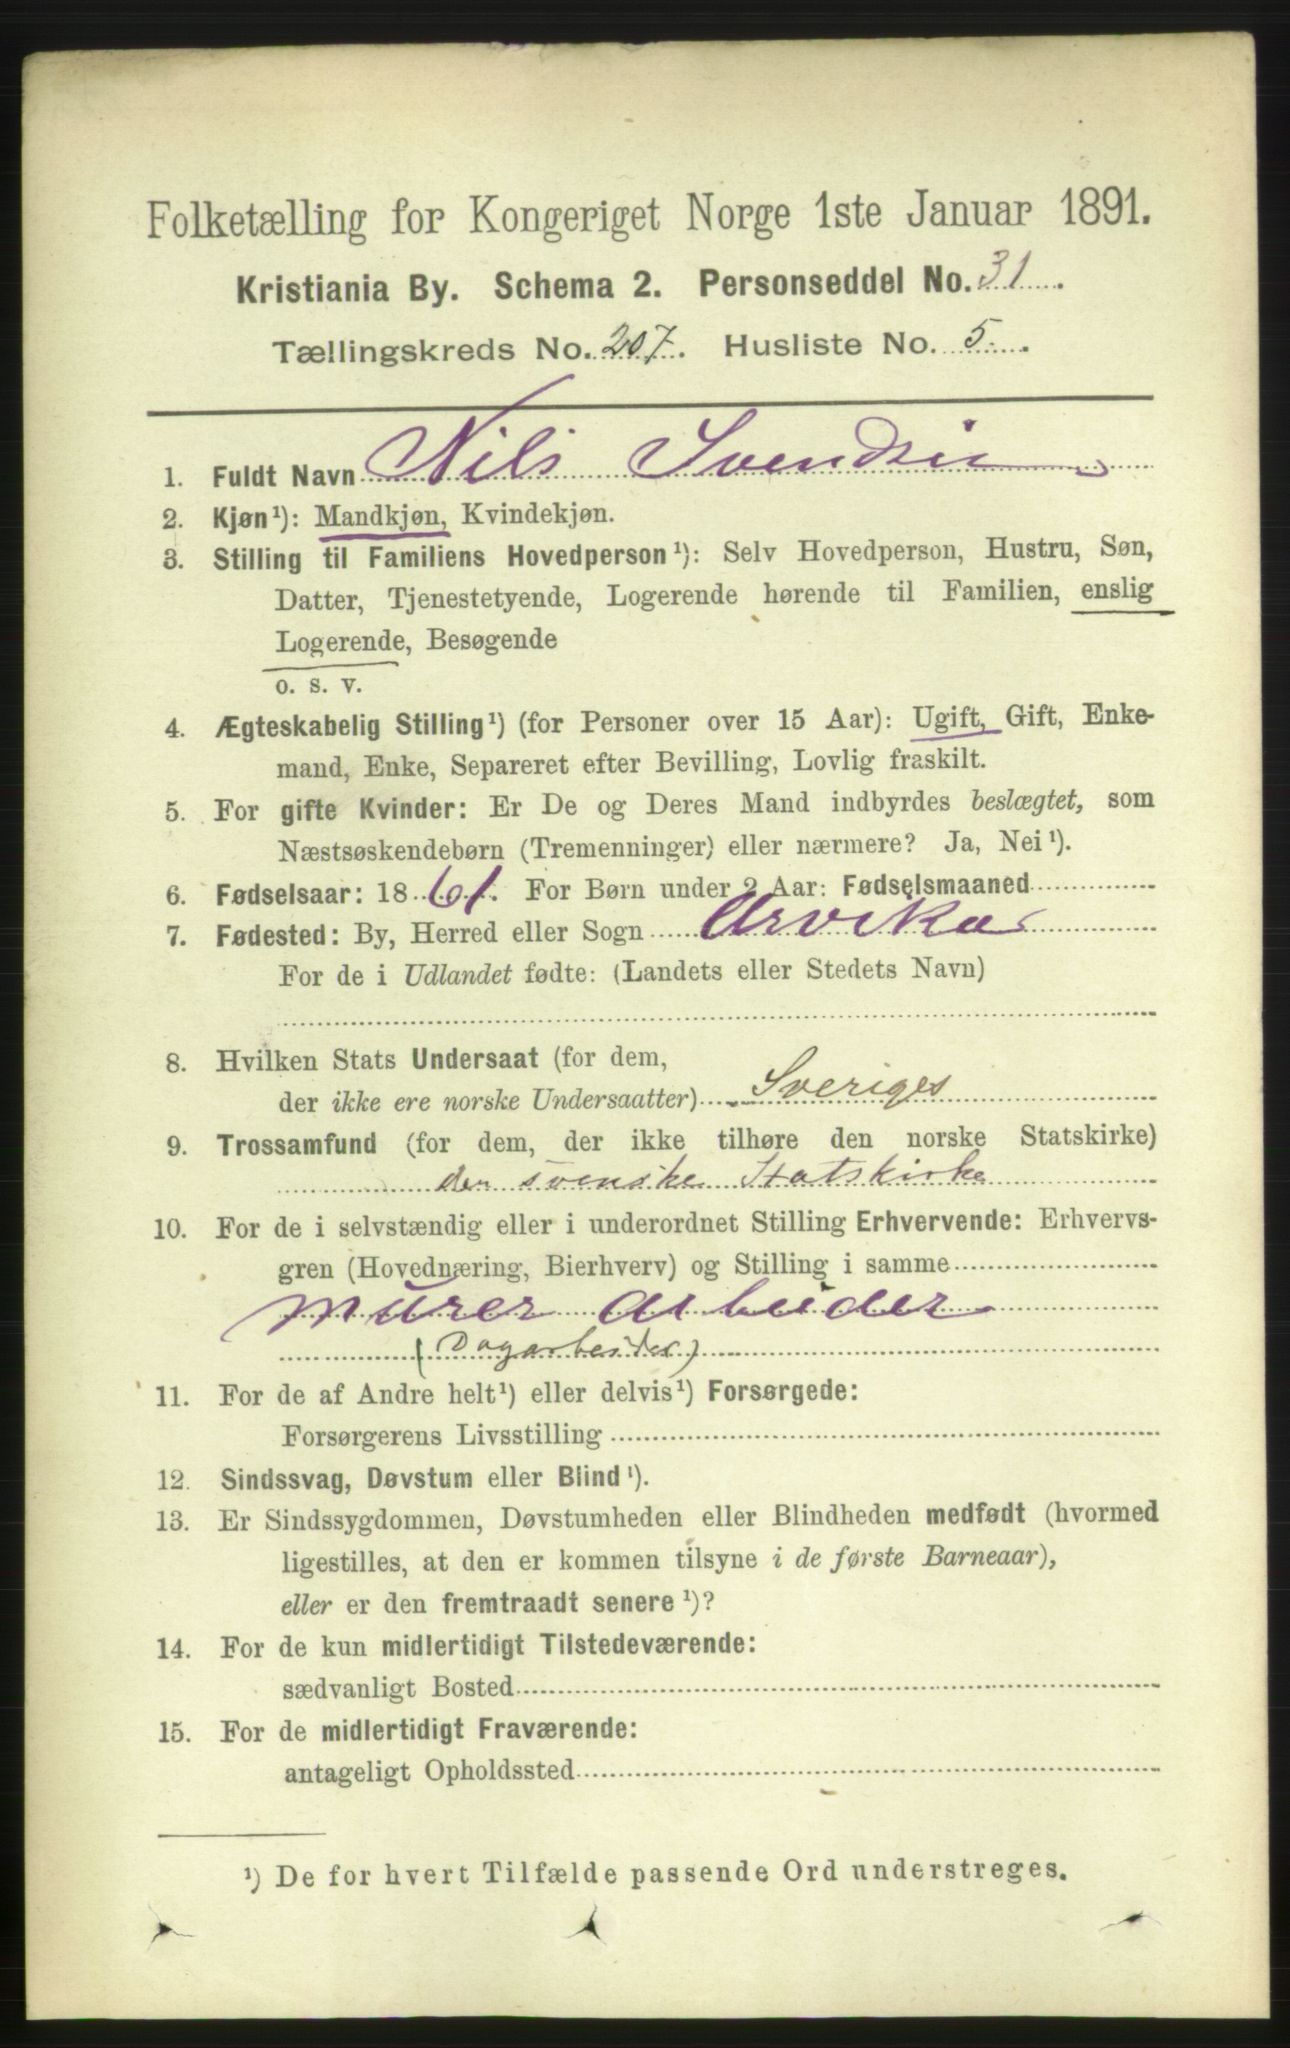 Folketælling for Kongeriget Norge 1ste Januar 1891.
Kristiania By. Schema 2. Personseddel No. 31.
Tællingskreds No. 207. Husliste No. 5.
1. Fuldt Navn Nils Svendsen
2. Kjøn¹): Mandkjøn, Kvindekjøn.
3. Stilling til Familiens Hovedperson¹): Selv Hovedperson, Hustru, Søn,
Datter, Tjenestetyende, Logerende hørende til Familien, enslig
Logerende, Besøgende
o. s. v.
4. Ægteskabelig Stilling¹) (for Personer over 15 Aar): Ugift, Gift, Enke-
mand, Enke, Separeret efter Bevilling, Lovlig fraskilt.
5. For gifte Kvinder: Er De og Deres Mand indbyrdes beslægtet, som
Næstsøskendebørn (Tremenninger) eller nærmere? Ja, Nei¹).
6. Fødselsaar: 1861. For Børn under 2 Aar: Fødselsmaaned
7. Fødested: By, Herred eller Sogn Arvika
For de i Udlandet fødte: (Landets eller Stedets Navn)
8. Hvilken Stats Undersaat (for dem,
der ikke ere norske Undersaatter) Sveriges
9. Trossamfund (for dem, der ikke tilhøre den norske Statskirke)
den svenske Statskirke
10. For de i selvstændig eller i underordnet Stilling Erhvervende: Erhvervs-
gren (Hovednæring, Bierhverv) og Stilling i samme
Murer arbeider
(Dagarbeider)
11. For de af Andre helt¹) eller delvis¹) Forsørgede:
Forsørgerens Livsstilling
12. Sindssvag, Døvstum eller Blind¹).
13. Er Sindssygdommen, Døvstumheden eller Blindheden medfødt (hvormed
ligestilles, at den er kommen tilsyne i de første Barneaar),
eller er den fremtraadt senere¹)?
14. For de kun midlertidigt Tilstedeværende:
sædvanligt Bosted
15. For de midlertidigt Fraværende:
antageligt Opholdssted
¹) De for hvert Tilfælde passende Ord understreges.